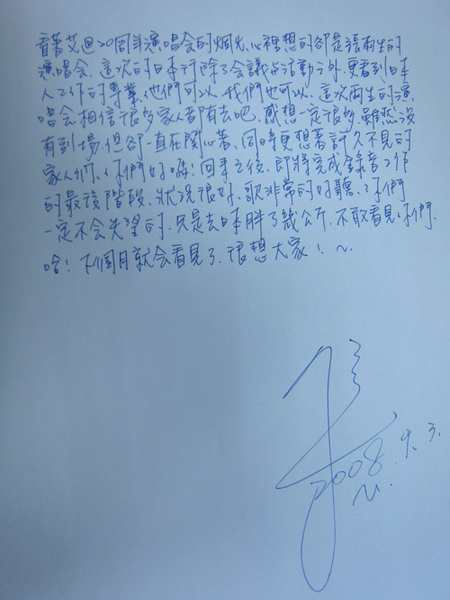 看著艾迴20周年演唱会的烟火,心裡想的卻是張雨生的
演唱会.這次的日本行除了会議与活動之外.更看到日本
人工作的專業.他們可以.我們也可以.這次雨生的演
唱会相信很多家人都有去吧.感想一定很多.雖然沒
有到場.但卻一直在関心著.同時更想著許久不見的
家人們.你們好嗎?回来之後.即將完成錄音工作
的最後階段.狀況很好.歌非常的好聽.你們
一定不会失望的.只是去日本胖了幾公斤.不敢看見你們.
哈!下個月就会看見了.很想大家!~
2008.9.3.